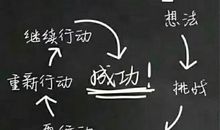 想法
继续行动
挑战
成功!
重新行动
行动